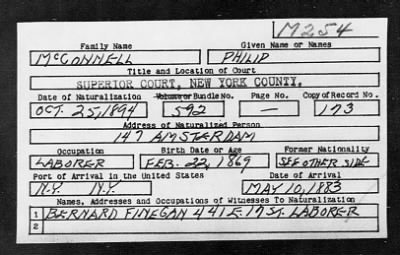 M254
Family Name Given Name or Names
McCONNELL PHILIP
Title and Location of Court
SUPERIOR COURT, NEW YORK COUNTY.
Date of Naturalization Volume or Bundle No. Page No. Copy of Record No.
OCT. 25, 1894 592 — 173
Address of Naturalized Person
147 AMSTERDAM
Occupation Birth Date or Age Former Nationality
LABORER FEB. 22, 1869 SEE OTHER SIDE
Port of Arrival in the United States Date of Arrival
N.Y. N.Y. MAY 10, 1883
Names, Addresses and Occupations of Witnesses To Naturalization
1 BERNARD FINEGAN 441 E. 17 ST. LABORER
2